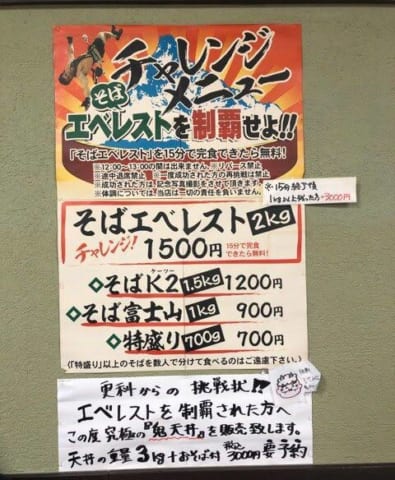 チャレンジ
メニュー
そば
エベレストを制覇せよ!!
「そばエベレスト」を15分で完食できたら無料!
※12:00~13:00の間は出来ません。※リバース禁止
※途中退席禁止 ※一度成功された方の再挑戦は禁止
※成功された方は、記念写真撮影をさせて頂きます。
※体調については、当店は一切の責任を負いません。
1kg以上残った方→3000円
そばエベレスト 2kg
チャレンジ! 1500円 15分で完食できたら無料!
ケーツー
◇そばK2 1.5kg 1200円
◇そば富士山 1kg 900円
◇特盛り 700g 700円
(「特盛り」以上のそばを数人で分けて食べるのはご遠慮下さい。)
更科からの 挑戦状!!
エベレストを制覇された方へ
この度究極の『鬼天丼』を販売致します。
天丼の重量3kg+おそば付 税込3000円 要予約